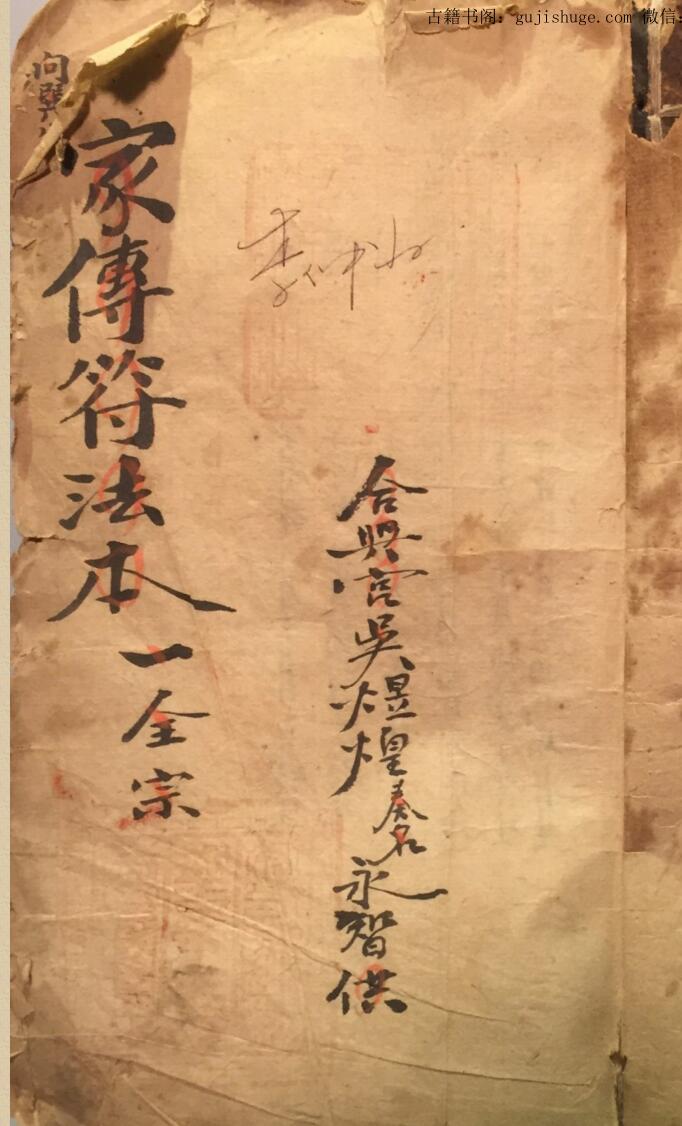 古籍书阁：gujishuge.com 微信：
合興宮吳煜煌奏名永智供
李仲
家傳符法本一全宗
向